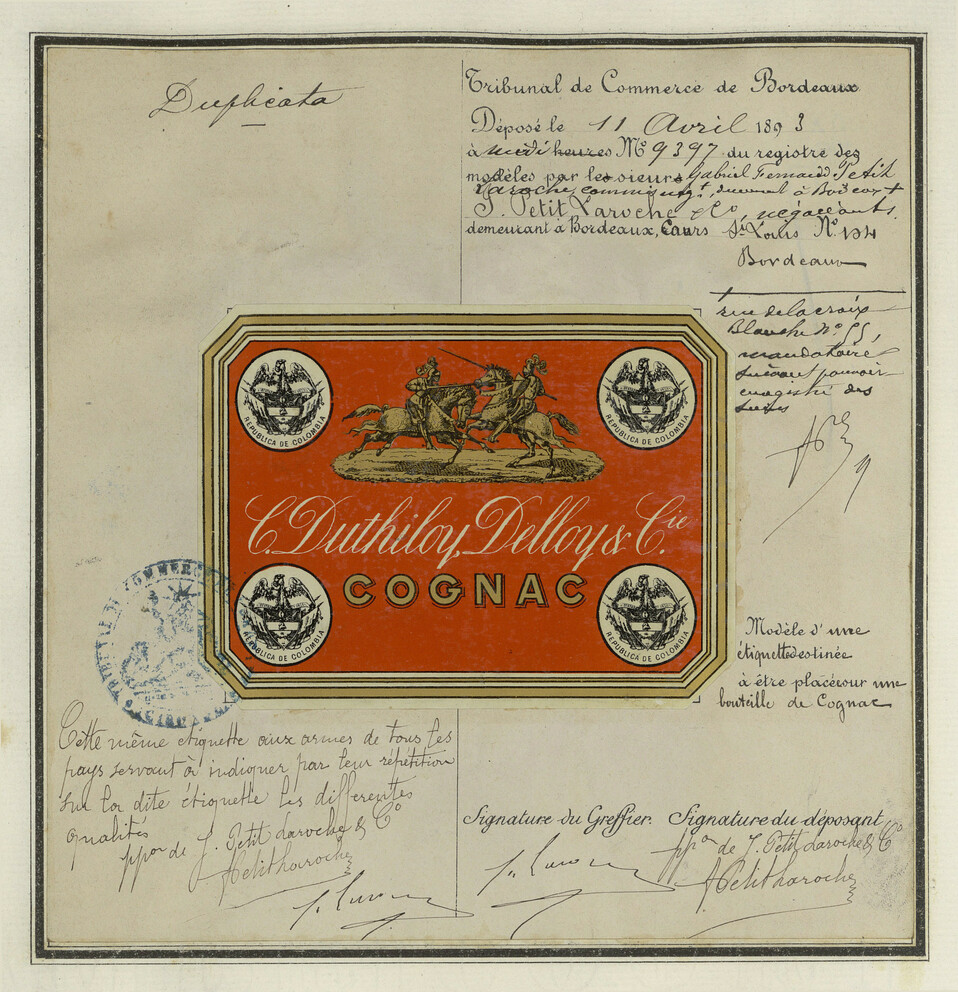 Duplicata
Tribunal de Commerce de Bordeaux
Déposé le 11 Avril 1893
à midi heures Nº 9397 du registre des
modèles par les sieurs Gabriel Fernand Petit
Laroche, demeurant à Bordeaux
J. Petit Laroche & Cº, négociants
demeurant à Bordeaux, Cours St Louis Nº 134
Bordeaux
rue de la croix
Blanche Nº 55,
mandataire
suivant pouvoir
enregistré des
REPUBLICA DE COLOMBIA
REPUBLICA DE COLOMBIA
C. Duthiloy, Delloy & Cie
COGNAC
REPUBLICA DE COLOMBIA
REPUBLICA DE COLOMBIA
TRIBUNAL DE COMMERCE
Modèle d'une
étiquette destinée
à être placée sur une
bouteille de Cognac
Cette même etiquette aux armes de tous les
pays servant à indiquer par leur répétition
sur la dite étiquette les differentes
qualités
ppon de J. Petit Laroche & Cº
Petit Laroche
Signature du Greffier. Signature du déposant
ppon de J. Petit Laroche & Cº
Petit Laroche